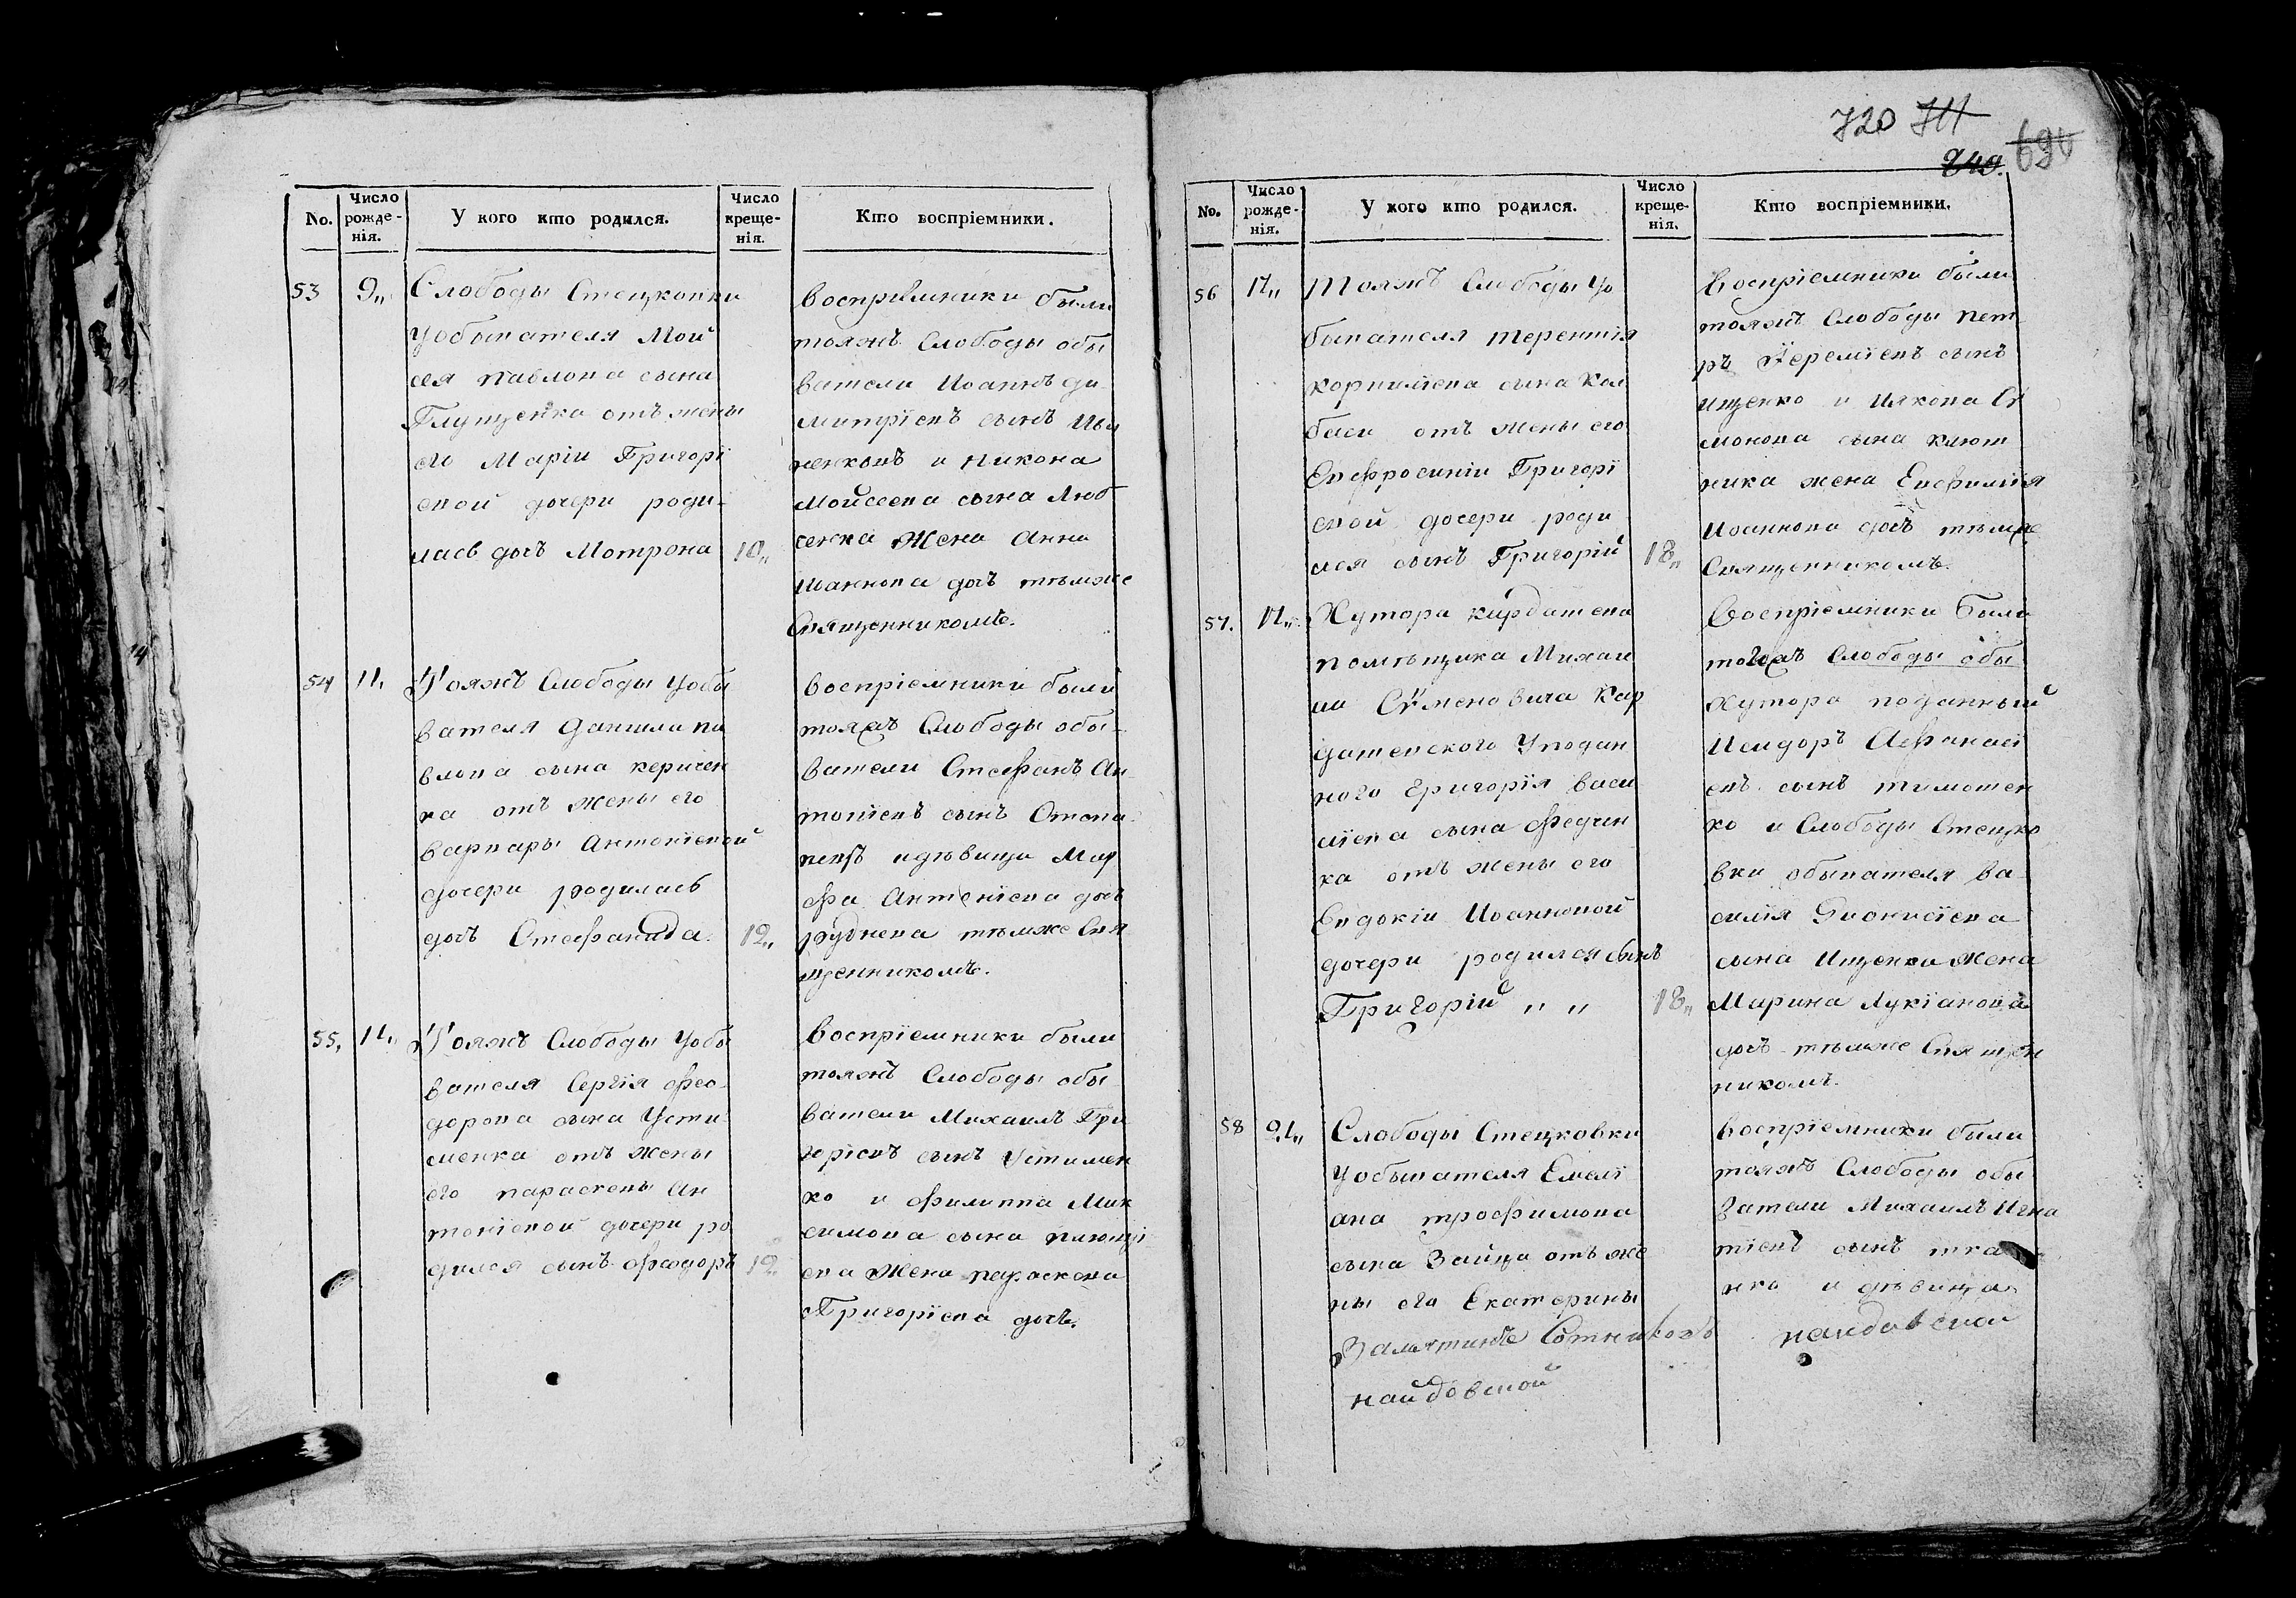 720 711
840. 690
No.
Число рожде-нія.
У кого кто родился.
Число креще-нія.
Кто воспріемники.
53
9„
Слободы Стецковки
уобывателя Мой
сея Павлова сына
Глущенка отъ жены
его Маріи Григорі
евой дочери роди-
лась дочь Мотрона
10„
Воспріемники были
тояжъ Слободы обы
ватели Иоаннъ ди
митріевъ сынъ
и Никона
Мойсеева сына Люб
ченка жена Анна
Иоаннова дочь тѣмже
Священникомъ.
54
11.
Тояжъ Слободы уобы
вателя Данила па
влова сына керичен
ка отъ жены его
варвары Антоніевой
дочери родилась
дочь Стефанида.
12„
Воспріемники были
тояжъ Слободы обы-
ватели Стефанъ Ан
тоніевъ сынъ
идѣвица Мар
фа Антоніева дочь
руднева тѣмже Свя
щенникомъ.
55.
11„
Тояжъ Слободы уобы
вателя Сергія фео-
дорова сына Усти-
менка отъ жены
его параскевы Ан
тоніевой дочери ро
дился сынъ феодоръ
12„
Воспріемники были
тояжъ Слободы обы
ватели Михаилъ Гри
горіевъ сынъ Устимен
ко и филиппа Мак
симова сына
ева жена параскева
Григоріева дочь.
No.
Число рожде-нія.
У кого кто родился.
Число креще-нія.
Кто воспріемники.
56
17„
Тояжъ Слободы уо
бывателя терентія
корниліева сына Кол
баси отъ жены его
Евфросиніи Григорі
евой дочери роди
лся сынъ Григорій
18„
Воспріемники были
тояжъ Слободы пет
ръ Іереміевъ сынъ
ищенко и Иякова Си
монова сына ключ
ника жена Евфимія
Иоаннова дочь тѣмже
Священникомъ.
57.
17„
Хутора кардашева
помѣщика Михаи
ла Сѵменовича Кар
дашевского уподан
ного Григорія васи
лієва сына федчен
ка отъ жены его
Евдокіи Иоанновой
дочери родился сынъ
Григорій „ „
18„
Воспріемники были
тогожъ Слободы обы
Хутора поданный
Исидоръ Афанасі
евъ сынъ тимошен
ко и Слободы Стецко
вки обывателя ва-
силія Дионисіева
сына Ищенка жена
Марина Лукіанова
дочь тѣмже Священ
никомъ.
58
21„
Слободы Стецковки
уобывателя Емелі
ана трофимова
сына Зайца отъ же
ны его Екатерины
найдовской
Воспріемники были
тояжъ Слободы обы
ватели Михаилъ Игна
тіевъ сынъ тка
нко и дѣвица